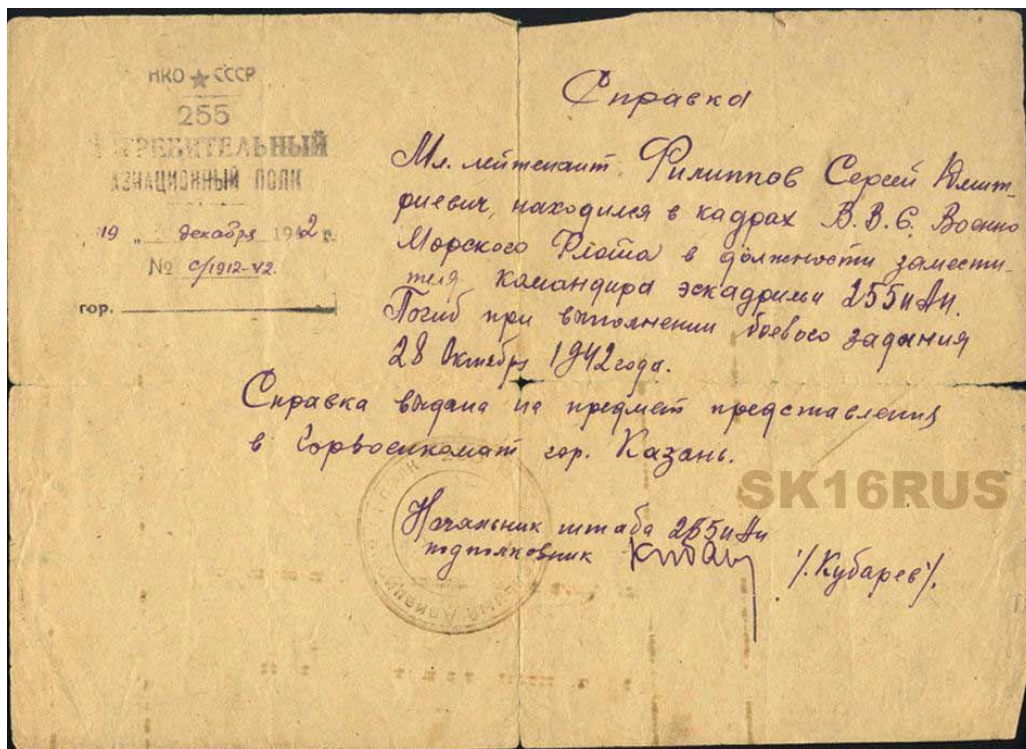 НКО ★ СССР
255
ИСТРЕБИТЕЛЬНЫЙ
АВИАЦИОННЫЙ ПОЛК
19 " декабря 1942 г.
№ с/1912-42.
гор.
Справка
Мл. лейтенант Филиппов Сергей Дмит-
риевич, находился в кадрах В.В.С. Военно
Морского Флота в должности замести-
теля командира эскадрильи 255иАп.
Погиб при выполнении боевого задания
28 Октября 1942 года.
Справка выдана на предмет представления
в Горвоенкомат гор. Казань.
SK16RUS
Начальник штаба 255иАп
подполковник
/.Кубарев/.